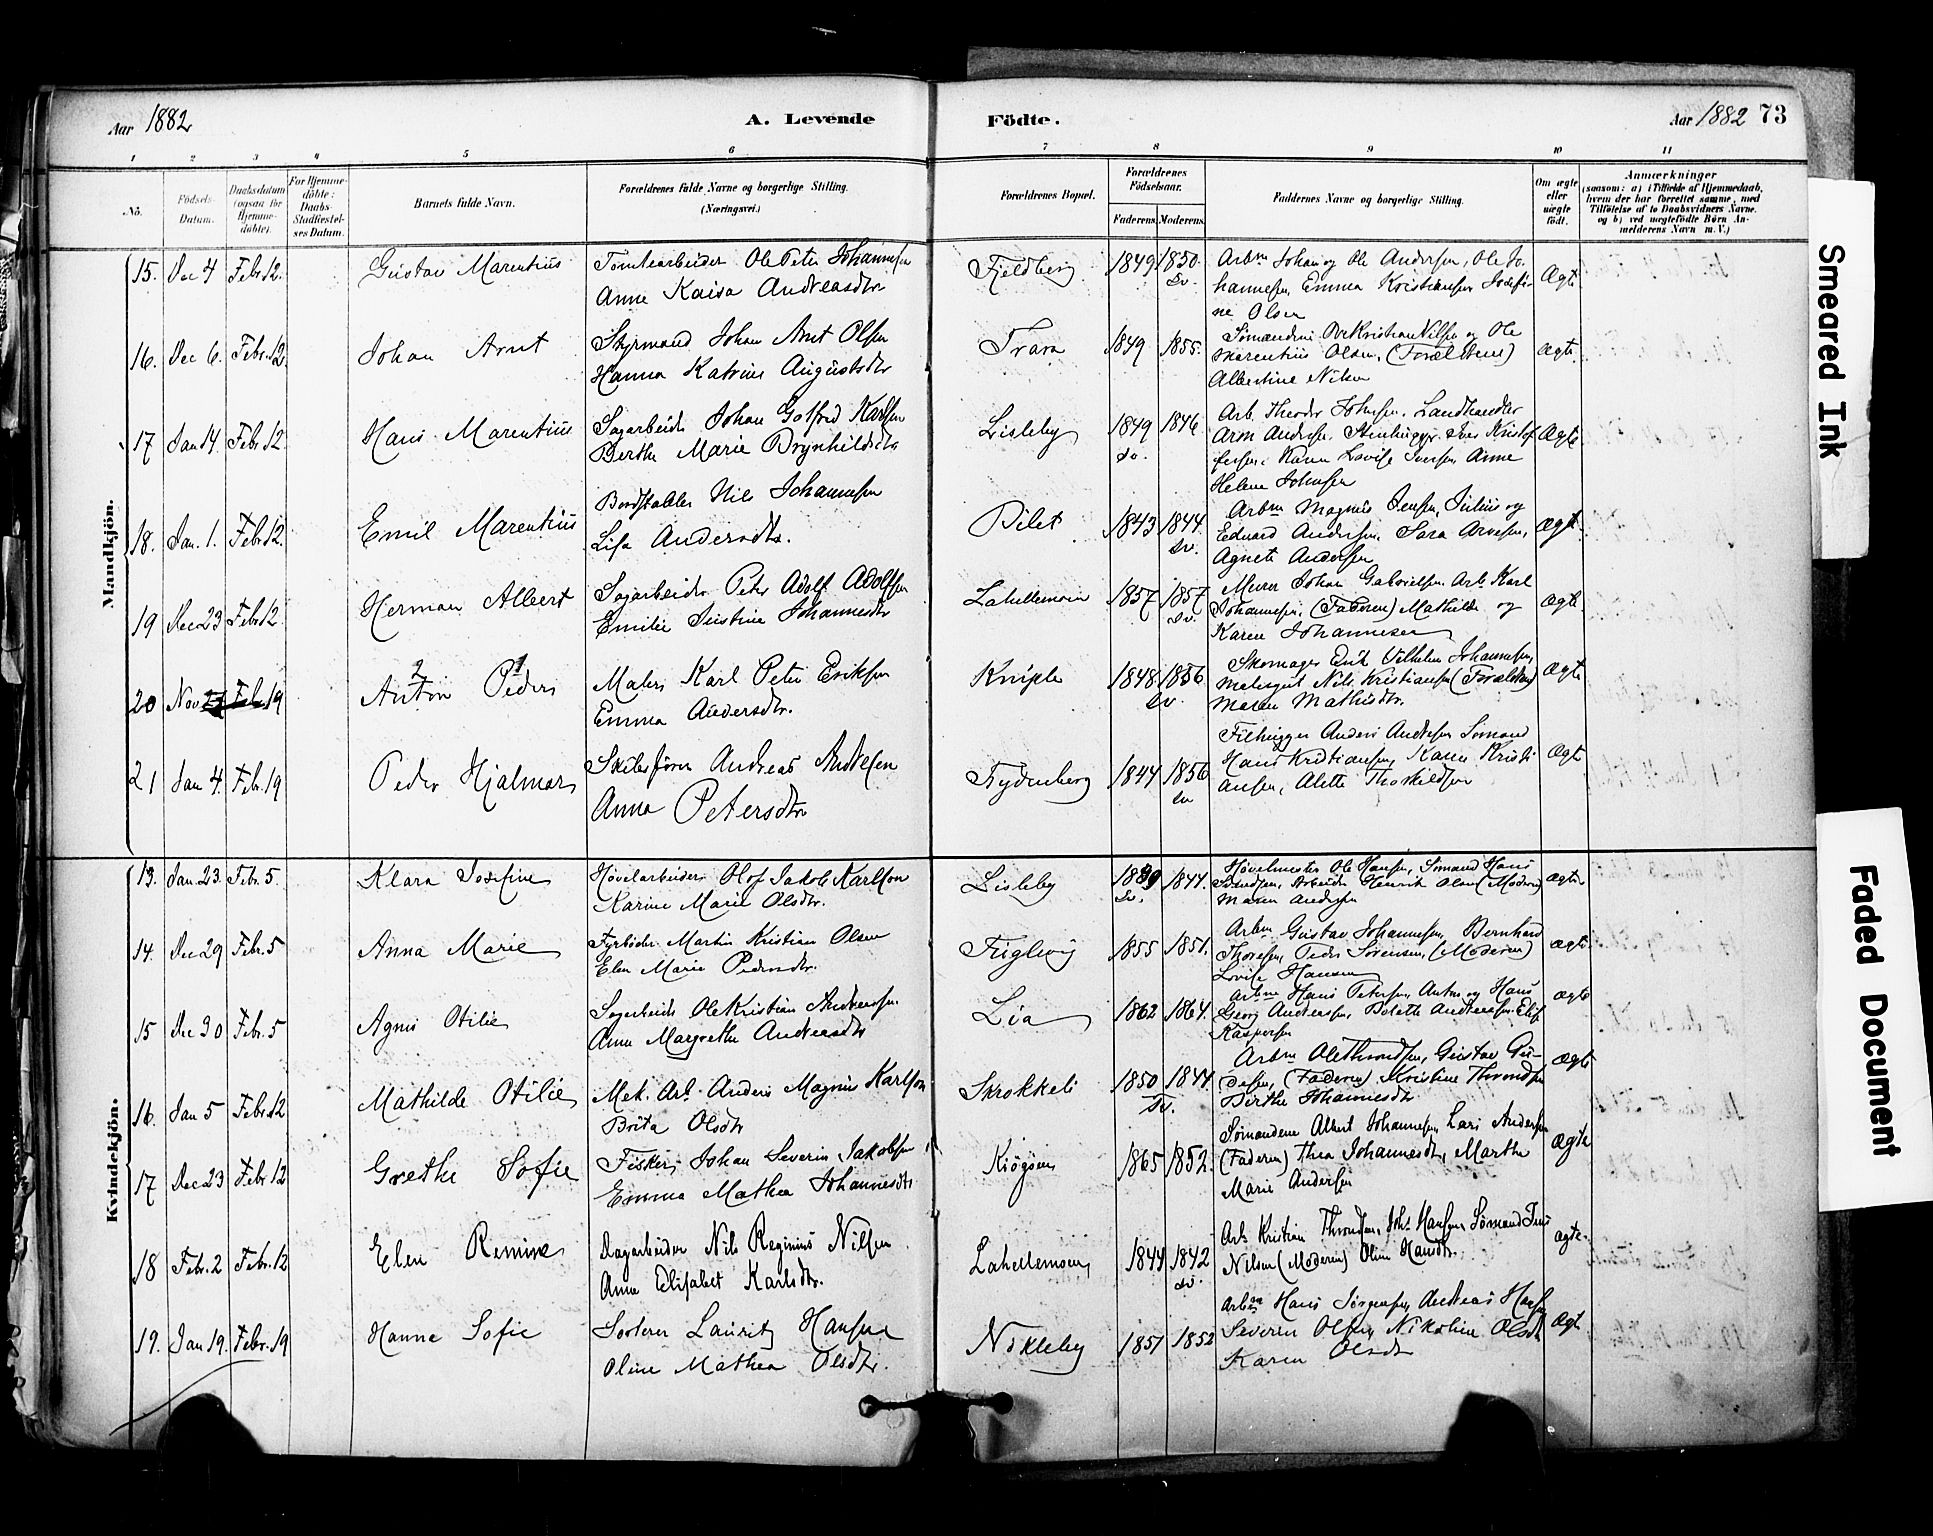 Aar 1882 A. Levende Födte. Aar 1882 73
1 2 3 4 5 6 7 8 9 10 11
No. Födsels-Datum. Daabsdatum (ogsaa for Hjemmedöbte). For Hjemmedöbte: Daabs-Stadfæstelses Datum. Barnets fulde Navn. Forældrenes fulde Navne og borgerlige Stilling. (Næringsvei.) Forældrenes Bopæl. Forældrenes Fødselsaar. Faderens. Moderens. Faddernes Navne og borgerlige Stilling. Om ægte eller uægte födt. Anmærkninger
(saasom: a) i Tilfælde af Hjemmedaab,
hvem der har forrettet samme, med
Tilföielse af to Daabsvidners Navne.
og b) ved uægtefödte Börn An-
melderens Navn m. V.)
Mandkjön.
15. Dec 4 Febr. 12. Gustav Marentius Tomtearbeider Ole Peter Johannesen
Anne Kaisa Andreasdtr
Fjeldberg 1849 1850 sv. Arbm Johan og Ole Andersen, Ole Jo-
hannesen, Emma Kristiansen Josefi-
ne Olsen
Ægte
16. Dec 6. Febr. 12. Johan Arnt Styrmand Johan Arnt Olsen
Hanna Katrine Augustsdtr
Trara 1849 1855. Sømændene Ole Kristian Nilsen og Ole
Marentius Olsen, (Forældrene)
Albertine Nilsen
Ægte.
17 Jan 14. Febr. 12. Hans Marentius Sagarbeider Johan Gotfred Karlsen
Berthe Marie Brynhildsdtr
Lisleby 1849 sv. 1846 Arb. Theodor Johnsen. Landhandler
Aron Andersen. Stenhugger Iver Kristof
fersen, Karen Lovise Jensen, Anne
Helene Johnsen
Ægte
18. Jan. 1. Febr. 12. Emil Marentius Bordstabler Nils Johannesen
Lisa Andersdtr.
Pilet 1843 1844. sv. Arbm Magnus Jensen, Julius og
Edvard Andersen. Sara Arnesen,
Agnete Andersen
Ægte.
19 Dec 23 Febr 12. Herman Albert Sagarbeider Peter Adolf Adolfsen
Emilie Justine Johannesdtr
Lahellemoen 1857 1857 sv. Murer Johan Gabrielsen. Arb. Karl
Johannesen. (Faderen) Mathilde og
Karen Johannesen
Ægte.
20 Nov Febr 19 2 Anton 1 Peder Maler Karl Peter Eriksen
Emma Andersdtr.
Kniple 1848 1856 sv. Skomager Erik Vilhelm Johannesen,
Malersvt Nils Kristiansen (Forældrene)
Maren Mathisdtr.
Ægte
21 Jan 4. Febr. 19 Peder Hjalmar Skibsfører Andreas Andresen
Anna Petersdtr
Rydenberg 1844 1856 sv Filhugger Anders Andresen Sømand
Hans Kristiansen, Karen Kristi
ansen, Alette Thorkildsen
Ægte
Kvindekjön.
13. Jan. 23. Febr. 5. Klara Josefine Høvelarbeider Olof Jakob Karlson
Karine Marie Olsdtr.
Lisleby 1839 sv. 1844. Høvelmester Ole Hansen, Sømand Hans
Arbeider Henrik Olsen (Moderen)
Maren Andersen
Ægte
14. Dec 29 Febr. 5 Anna Marie Fyrbøder Martin Kristian Olsen
Elen Marie Pedersdtr.
Fuglevig 1855 1851. Arbm Gustav Johannesen, Bernhard
Thoresen, Peder Sørensen, (Moderen)
Lovise Hansen
Ægte.
15 Dec 30 Febr. 5 Agnes Otilie Sagarbeider Ole Kristian Andreasen.
Anne Margrethe Andreasdtr
Lia 1862 1864. Arbm Hans Petersen, Anton og Hans
Georg Andreasen, Bolette Andreasen. Elise
Kaspersen
Ægte
16. Jan 5 Febr. 12 Mathilde Otilie Mek. Arb. Anders Magnus Karlson
Brita Olsdtr
Skrokkeli 1850 1844 sv. Arbm Ole Throndsen, Gustav Gu-
(Faderen) Kristine Throndsen
Berthe Johannesdtr
Ægte
17 Dec 23 Febr 12 Grethe Sofie Fisker Johan Severin Jakobsen
Emma Mathea Johannesdtr
Kiøgsøen 1865 1852. Sømændene Albert Johannesen, Lars Andersen
(Faderen) Thea Johannesdtr, Marthe
Marie Andersen
Ægte
18 Febr. 2 Febr. 12 Elen Remine Dagarbeider Nils Reginius Nilsen
Anne Elisabet Karlsdtr.
Lahellemoen 1844 1842 sv. Arb. Kristian Throndsen, Joh. Hansen, Sømand Jens
Nilsen (Moderen) Oline Hansdtr.
ægte.
19. Jan 19. Febr. 19 Hanna Sofie Sorterer Lauritz Hansen
Oline Mathea Olsdtr.
Nokleby 1851 1852 Arbm Hans Jørgensen, Andreas Hansen
Severin Olsen, Nikoline Olsdtr
Karen Olsdtr
Ægte
Smeared Ink
Faded Document